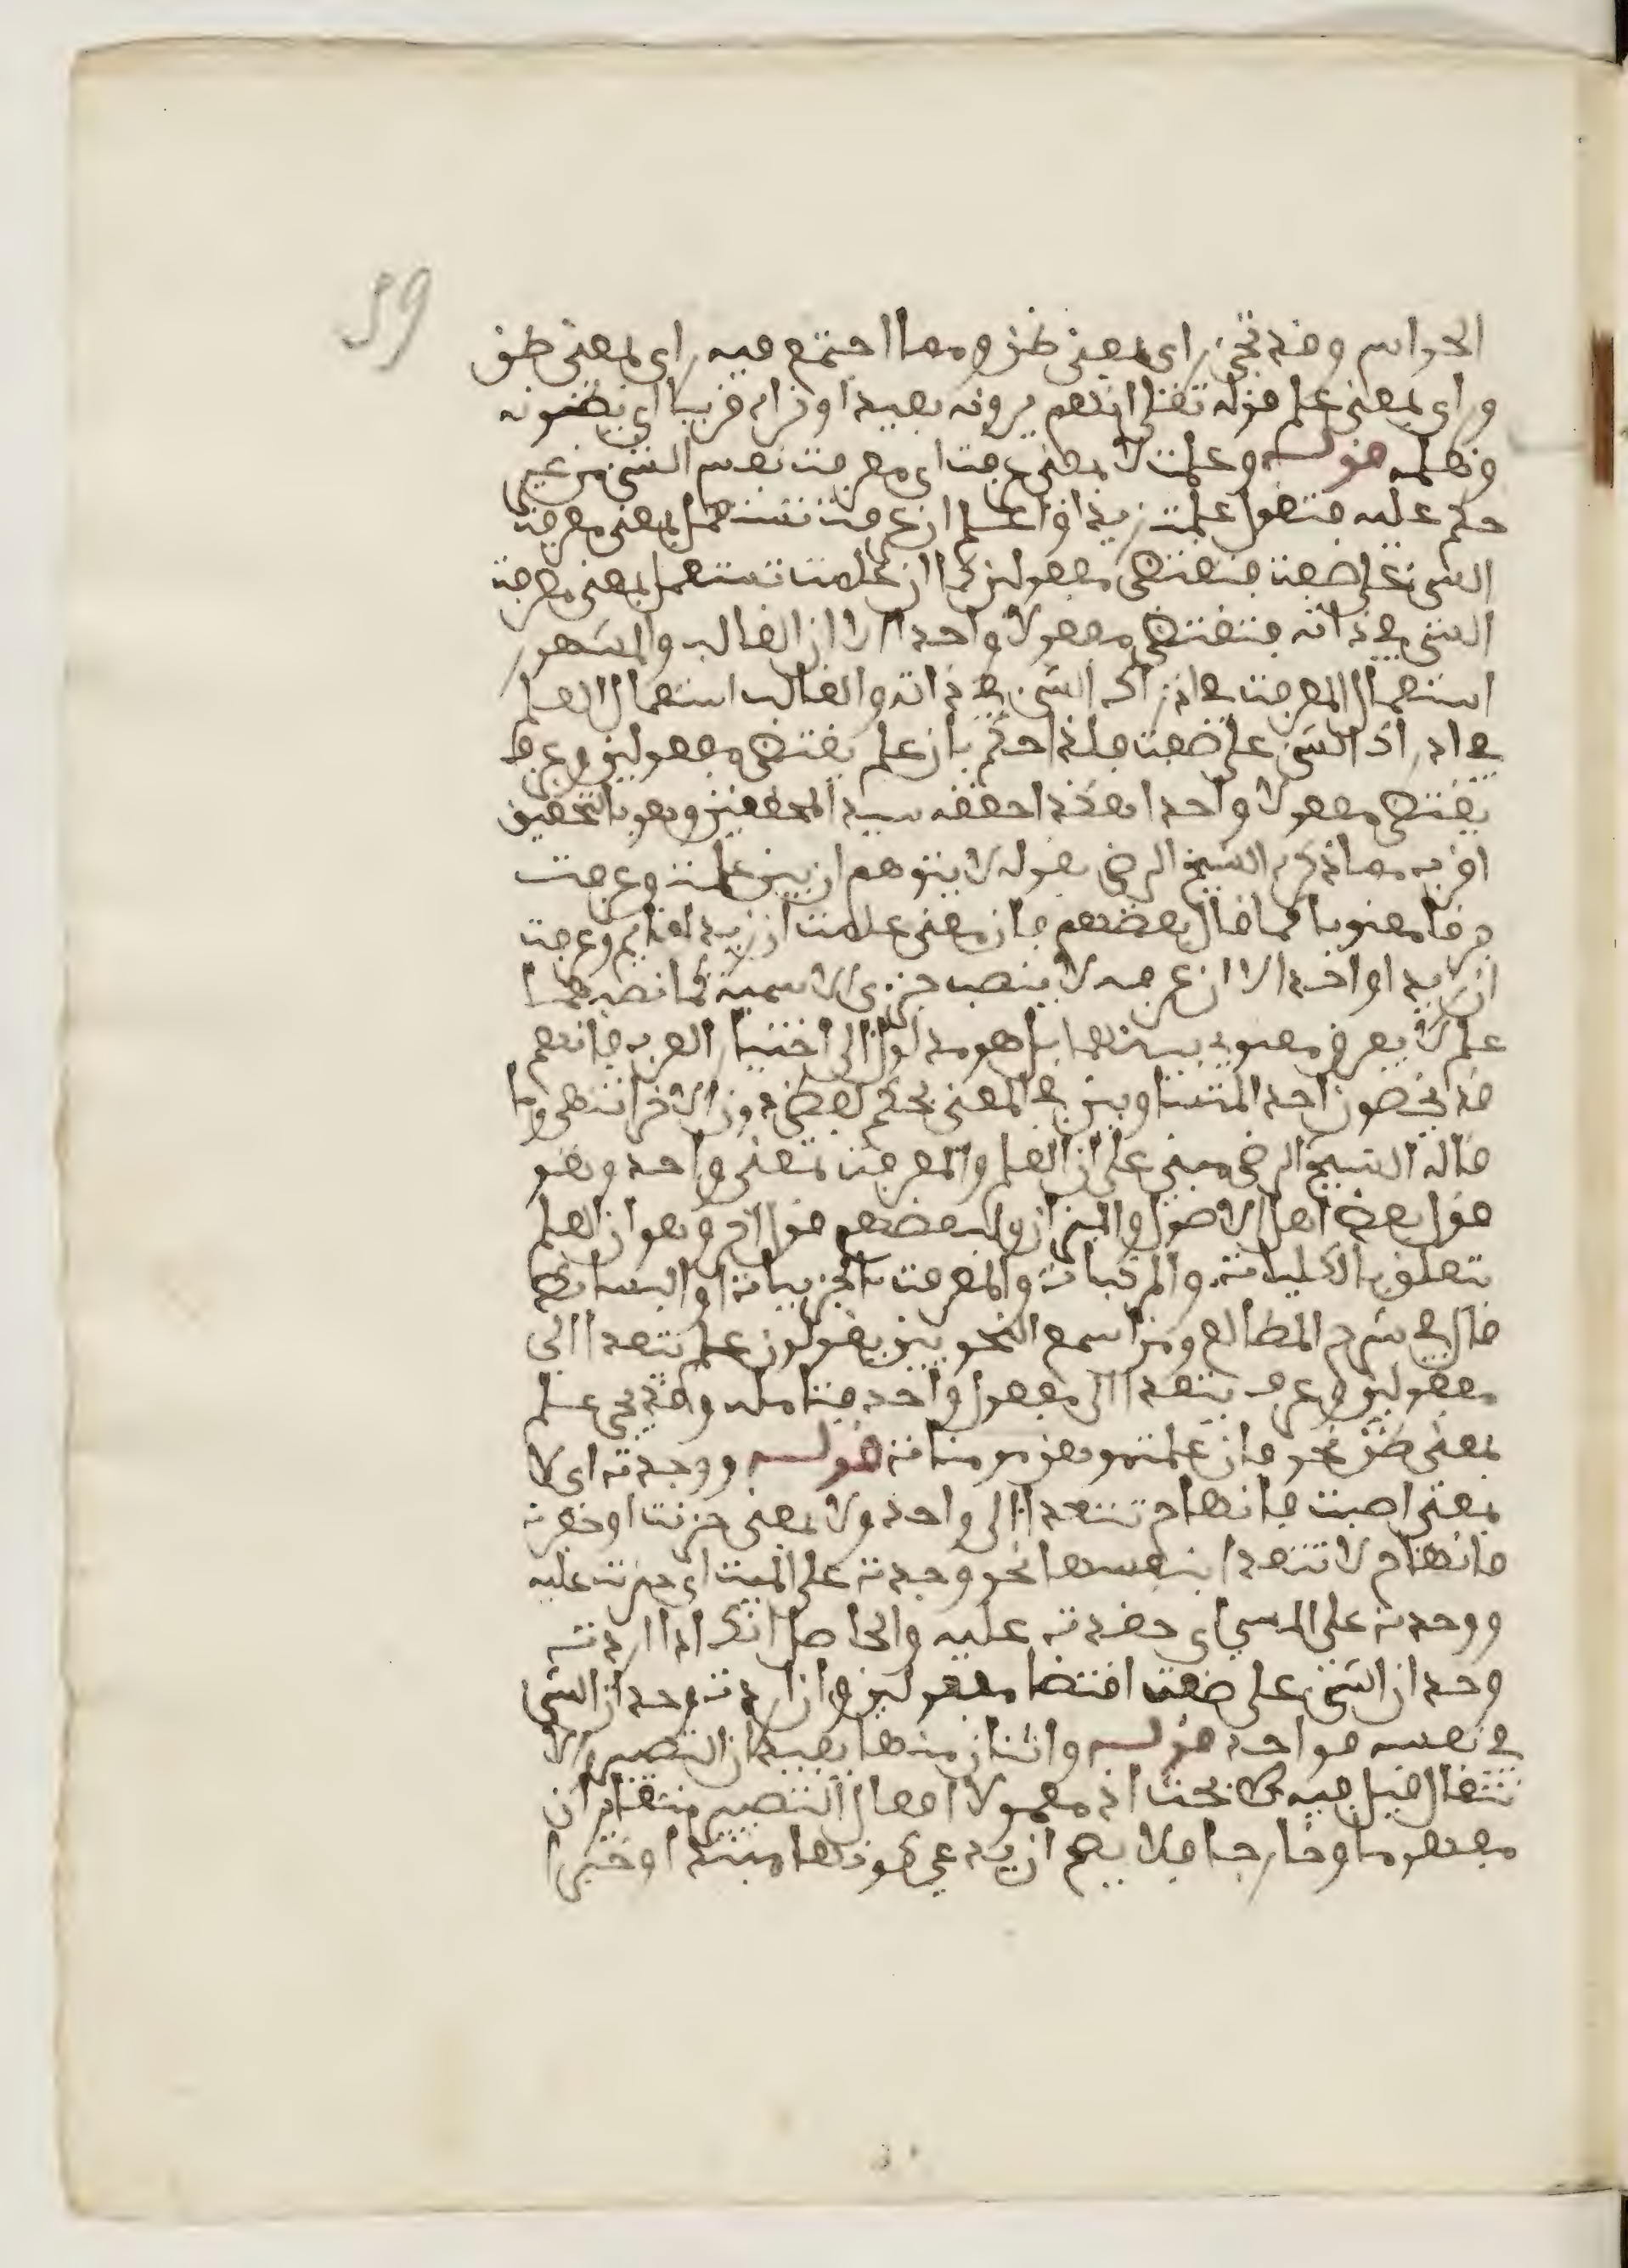 59
الحواس وقد تجيء راى بمعنى ظن ومما اجتمع فيه راى بمعنى ظن
وراى بمعنى علم قوله تعالى انهم يرونه بعيدا ونراه قريبا اي يظنونه
ونعلمه قوله وعلمت لا بمعنى عرفت اي معرفت نفس الشيء من غير
حكم عليه فتقول علمت زيدا واعلم ان عرفت تستعمل بمعنى معرفت
الشيء على صفت فتقتضي مفعولين كما ان علمت تستعمل بمعنى معرفت
الشيء في ذاته فتقتضي مفعولا واحدا الا ان الغالب والمشهور
استعمال المعرفت في ادراك الشيء في ذاته والغالب استعمال العلم
في ادراك الشيء على صفت فلذا حكم بان علم يقتضي مفعولين وعرف
يقتضي مفعولا واحدا هكذا حققه سيد المحققين وهو بالتحقيق
اقرب مما ذكره الشيخ الرضى بقوله لا يتوهم ان بين علمت وعرفت
فرقا معنويا كما قال بعضهم فان معنى علمت ان زيدا قايم وعرفت
ان زيدا واحد الا ان عرف لا ينصب جزءي الاسمية كما نصبهما
علم لا لفرق معنوي بينهما بل هو موكول الى اختيار العرب فانهم
قد يخصون احد المتساويين في المعنى بحكم لفظي دون الاخر انتهى وما
قاله الشيخ الرضى مبني على ان العلم والمعرفت بمعنى واحد وهو
قول بعض اهل الاصول والميزان ولبعضهم قول اخر وهو ان العلم
يتعلق بالكليات والمركبات والمعرفت بالجزييات او البسائط
قال في شرح المطالع ومن اسمع النحويين يقولون علم يتعدا الى
مفعولين وعرف يتعدا الى مفعول واحد فتامله وقد تجي علم
بمعنى ظن نحو فان علمتموهن مومنات قوله ووجدت اي لا
بمعنى اصبت فانها ح تتعدا الى واحد ولا بمعنى حزنت او حقدت
فانها ح لا تتعدا بنفسها نحو وجدت على الميت اي حزنت عليه
ووجدت على المسيء اي حقدت عليه والحاصل انك اذا اردت
وجدان الشيء على صفت اقتضا مفعولين وان اردت وجدان الشيء
في نفسه فواحد قوله واثنان منها يفيدان التصيير والا
نتقال قيل فيه بحث اذ معمولا افعال التصيير متغايران
مفهوما وخارجا فلا يصح ان يدعى كونهما مبتدا وخبرا